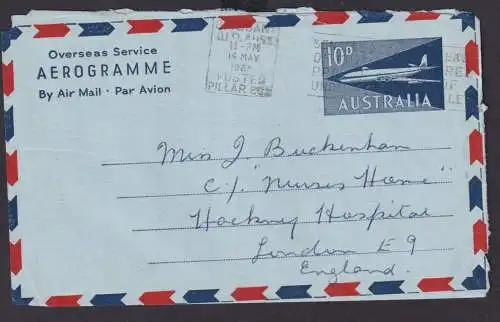 Overseas Service
AEROGRAMME
By Air Mail · Par Avion
11-PM
MAY
POSTED
PILLAR BOX
10D
AUSTRALIA
Miss J. Buckenham
C/- "Nurses Home"
Hackney Hospital
London E 9
England.